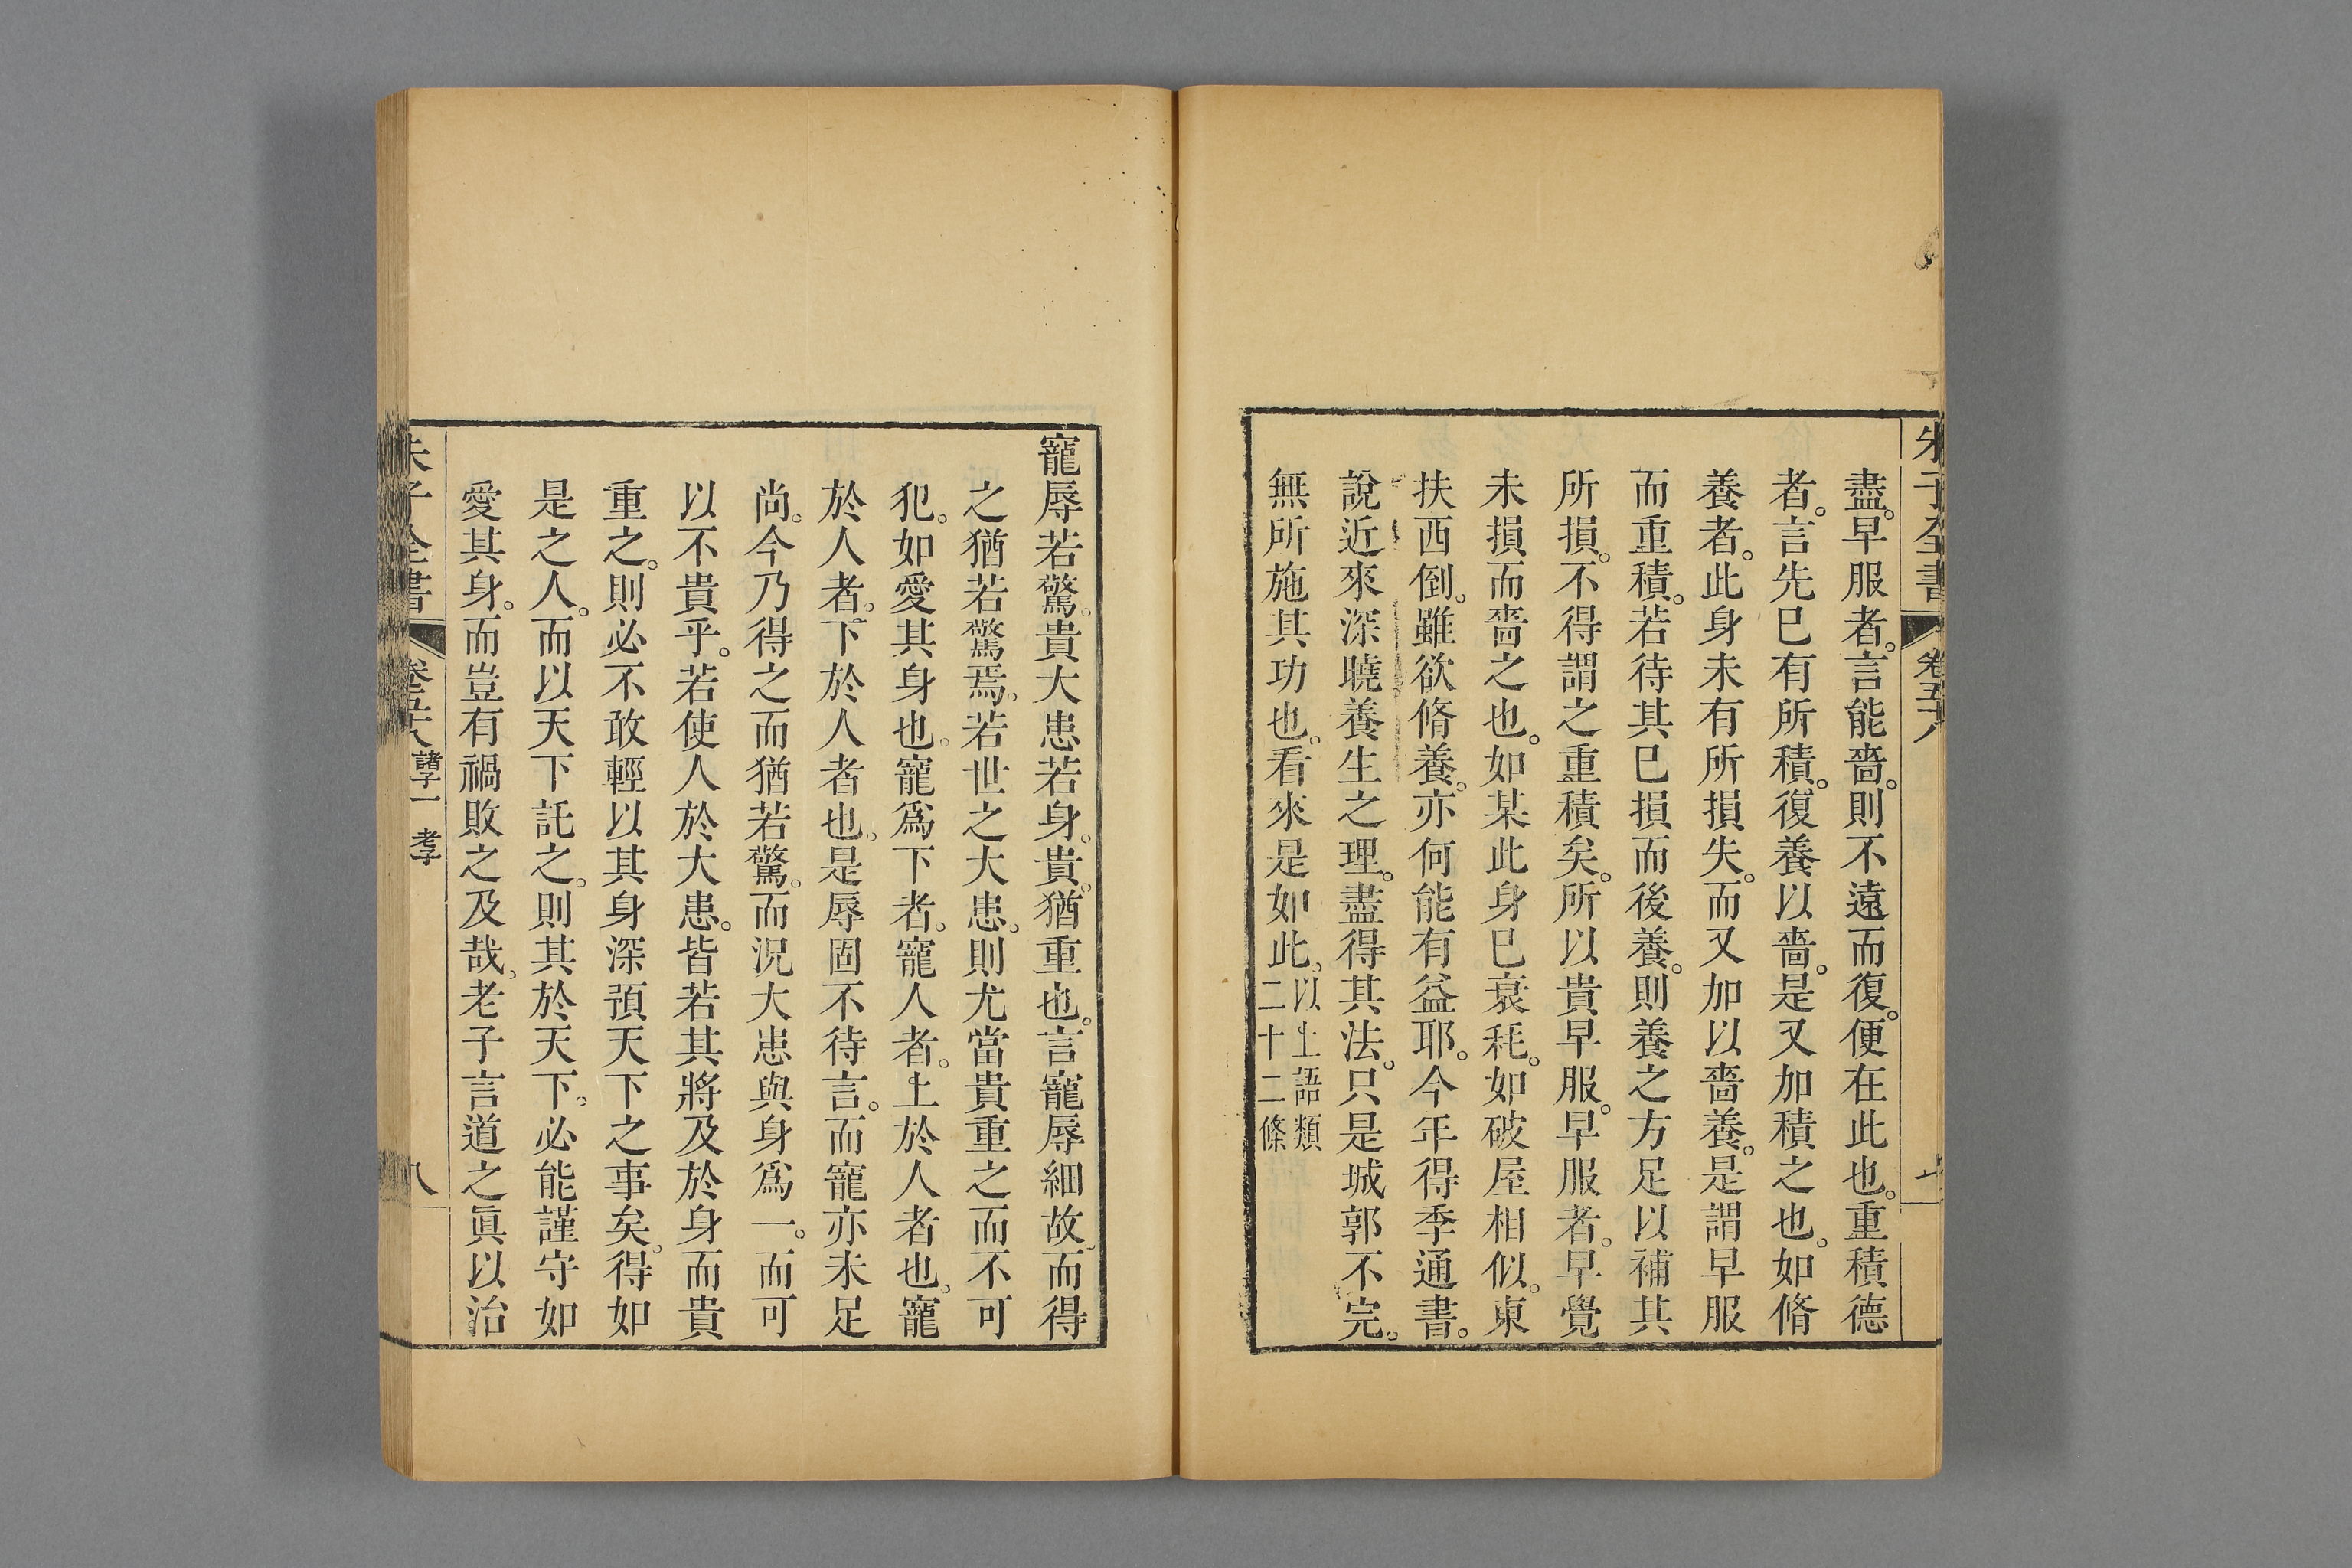 朱子全書 卷五十八 七
盡。早服者。言能嗇。則不遠而復。便在此也。重積德
者。言先已有所積。復養以嗇。是又加積之也。如脩
養者。此身未有所損失。而又加以嗇養。是謂早服
而重積。若待其已損而後養。則養之方足以補其
所損。不得謂之重積矣。所以貴早服。早服者。早覺
未損而嗇之也。如某此身已衰耗。如破屋相似。東
扶西倒。雖欲脩養。亦何能有益耶。今年得季通書。
說近來深曉養生之理。盡得其法。只是城郭不完。
無所施其功也。看來是如此。以上語類二十二條
寵辱若驚。貴大患若身。貴。猶重也。言寵辱細故。而得
之猶若驚焉。若世之大患。則尤當貴重之而不可
犯。如愛其身也。寵爲下者。寵人者。上於人者也。寵
於人者。下於人者也。是辱固不待言。而寵亦未足
尚。今乃得之而猶若驚。而況大患與身爲一。而可
以不貴乎。若使人於大患。皆若其將及於身而貴
重之。則必不敢輕以其身深預天下之事矣。得如
是之人。而以天下託之。則其於天下。必能謹守如
愛其身。而豈有禍敗之及哉。老子言道之眞以治
朱子全書 卷五十八 諸子一 老子 八